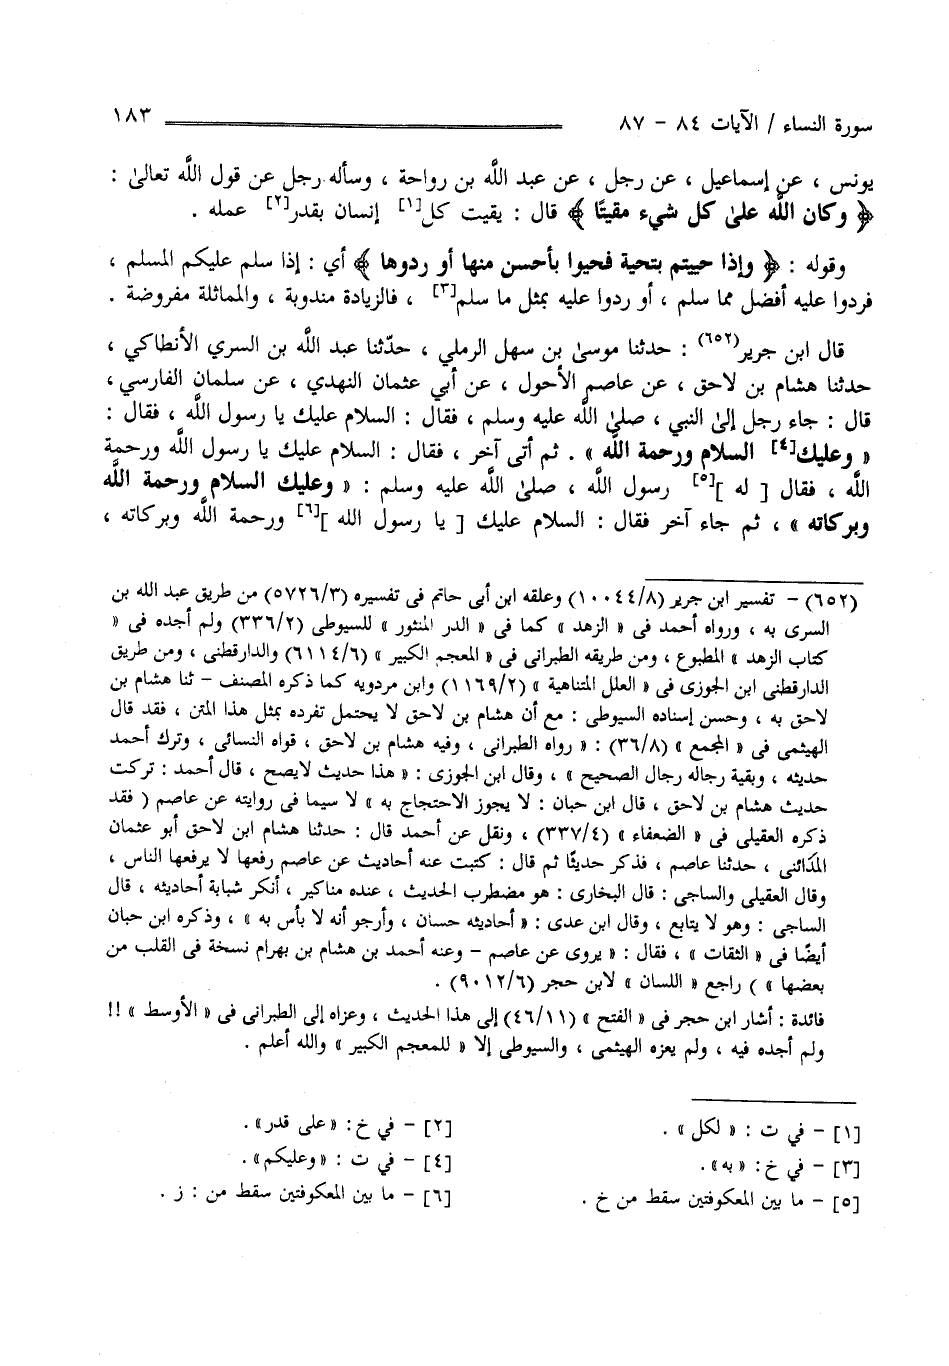 سورة النساء / الآيات ٨٤ - ٨٧ ١٨٣
يونس ، عن إسماعيل ، عن رجل ، عن عبد اللَّه بن رواحة ، وسأله رجل عن قول اللَّه تعالىٰ :
﴿ وكان اللَّه علىٰ كل شيء مقيتًا ﴾ قال : يقيت كل[١] إنسان بقدر[٢] عمله .
وقوله : ﴿ وإذا حييتم بتحية فحيوا بأحسن منها أو ردوها ﴾ أي : إذا سلم عليكم المسلم ،
فردوا عليه أفضل مما سلم ، أو ردوا عليه بمثل ما سلم[٣] ، فالزيادة مندوبة ، والمماثلة مفروضة .
قال ابن جرير(٦٥٢) : حدثنا موسىٰ بن سهل الرملي ، حدّثنا عبد اللَّه بن السري الأنطاكي ،
حدثنا هشام بن لاحق ، عن عاصم الأحول ، عن أبي عثمان النهدي ، عن سلمان الفارسي ،
قال : جاء رجل إلىٰ النبي ، صلىٰ اللَّه عليه وسلم ، فقال : السلام عليك يا رسول اللَّه ، فقال :
« وعليك[٤] السلام ورحمة اللَّه » . ثم أتى آخر ، فقال : السلام عليك يا رسول اللَّه ورحمة
اللَّه ، فقال [ له ][٥] رسول اللَّه ، صلىٰ اللَّه عليه وسلم : « وعليك السلام ورحمة اللَّه
وبركاته » ، ثم جاء آخر فقال : السلام عليك [ يا رسول الله ][٦] ورحمة اللَّه وبركاته ،
(٦٥٢) - تفسير ابن جرير (١٠٠٤٤/٨) وعلقه ابن أبى حاتم فى تفسيره (٥٧٢٦/٣) من طريق عبد الله بن
السرى به ، ورواه أحمد فى « الزهد » كما فى « الدر المنثور » للسيوطى (٣٣٦/٢) ولم أجده فى «
كتاب الزهد » المطبوع ، ومن طريقه الطبرانى فى « المعجم الكبير » (٦١١٤/٦) والدارقطنى ، ومن طريق
الدارقطنى ابن الجوزى فى « العلل المتناهية » (١١٦٩/٢) وابن مردويه كما ذكره المصنف - ثنا هشام بن
لاحق به ، وحسن إسناده السيوطى : مع أن هشام بن لاحق لا يحتمل تفرده بمثل هذا المتن ، فقد قال
الهيثمى فى « المجمع » (٣٦/٨) : « رواه الطبرانى ، وفيه هشام بن لاحق ، قواه النسائى ، وترك أحمد
حديثه ، وبقية رجاله رجال الصحيح » ، وقال ابن الجوزى : « هذا حديث لايصح ، قال أحمد : تركت
حديث هشام بن لاحق ، قال ابن حبان : لا يجوز الاحتجاج به » لا سيما فى روايته عن عاصم ( فقد
ذكره العقيلى فى « الضعفاء » (٣٣٧/٤) ، ونقل عن أحمد قال : حدثنا هشام ابن لاحق أبو عثمان
المدائنى ، حدثنا عاصم ، فذكر حديثًا ثم قال : كتبت عنه أحاديث عن عاصم رفعها لا يرفعها الناس ،
وقال العقيلى والساجى : قال البخارى : هو مضطرب الحديث ، عنده مناكير ، أنكر شبابة أحاديثه ، قال
الساجى : وهو لا يتابع ، وقال ابن عدى : « أحاديثه حسان ، وأرجو أنه لا بأس به » ، وذكره ابن حبان
أيضًا فى « الثقات » ، فقال : « يروى عن عاصم - وعنه أحمد بن هشام بن بهرام نسخة فى القلب من
بعضها » ) راجع « اللسان » لابن حجر (٩٠١٢/٦) .
فائدة : أشار ابن حجر فى « الفتح » (٤٦/١١) إلى هذا الحديث ، وعزاه إلى الطبرانى فى « الأوسط » !!
ولم أجده فيه ، ولم يعزه الهيثمى ، والسيوطى إلا « للمعجم الكبير » والله أعلم .
[١] - في ت : « لكل » . [٢] - في خ : «على قدر» .
[٣] - في خ : «به» . [٤] - في ت : «وعليكم» .
[٥] - ما بين المعكوفتين سقط من خ . [٦] - ما بين المعكوفتين سقط من : ز .